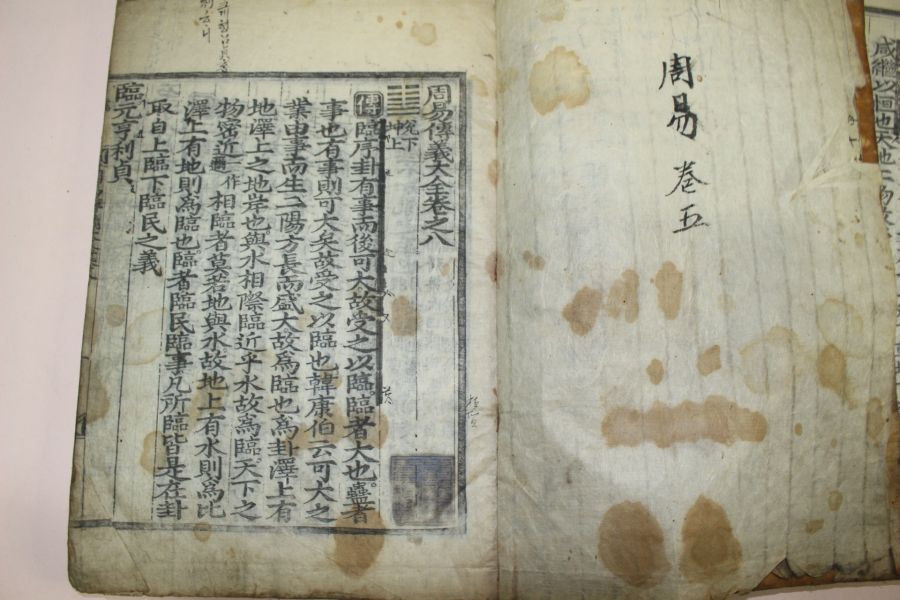 咸繼以恒也天地二物故
周易 卷五
周易傳義大全卷之八
兌下
坤上
傳臨序卦有事而後可大故受之以臨。臨者大也。蠱者
事也有事則可大矣故受之以臨也韓康伯云可大之
業由事而生二陽方長而盛大故為臨也為卦澤上有
地澤上之地岸也與水相際臨近乎水故為臨。天下之
物密近一作邇相臨者莫若地與水故地上有水則為比
澤上有地則為臨也。臨者臨民臨事凡所臨皆是在卦
取自上臨下臨民之義
臨元亨利貞